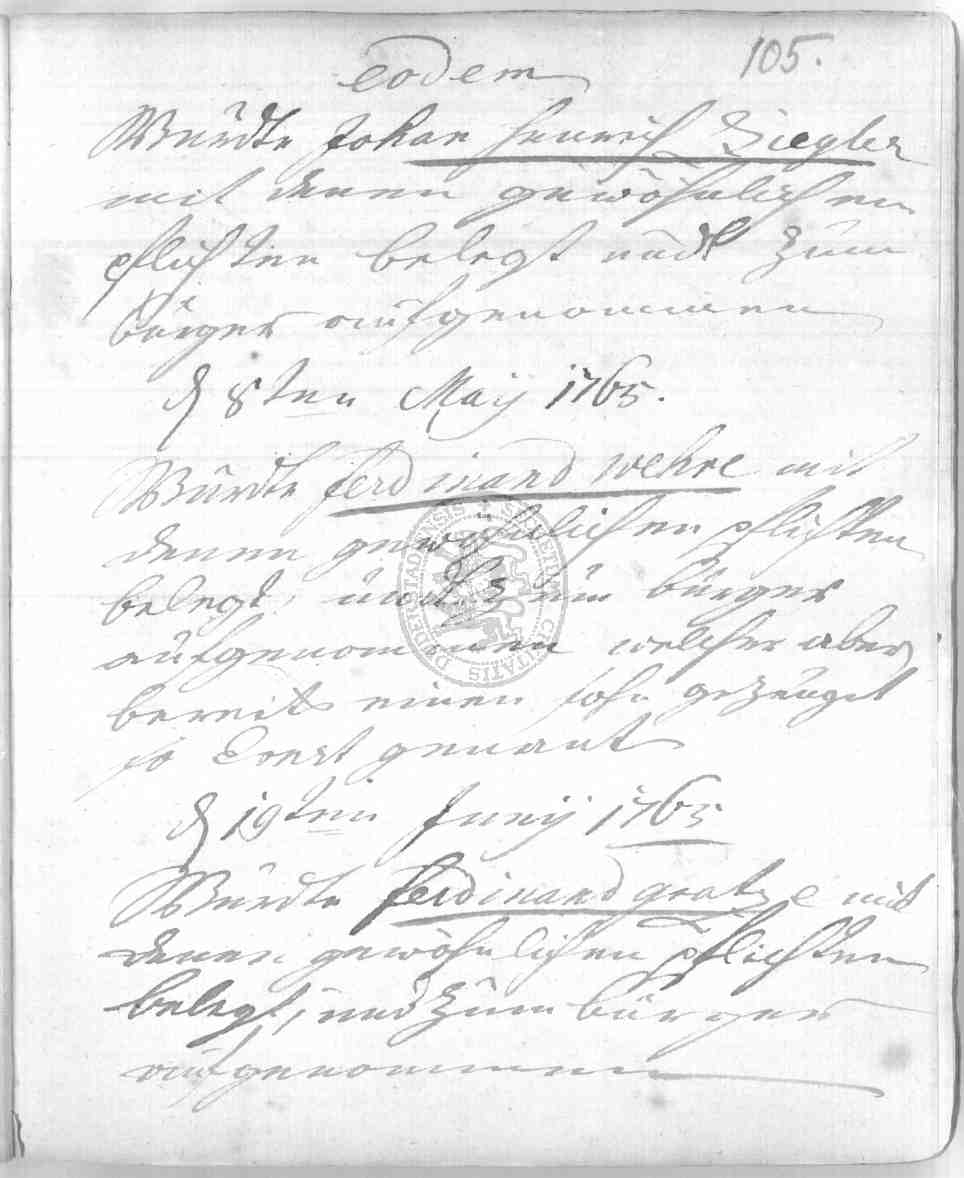 105.
eodem
Wurdte Johan Henrich Ziegler
mit denen gewöhnlichen
pflichten belegt undt zum
bürger aufgenommen
d 8ten Maij 1765.
Wurdte ferdinand wehre mit
denen gewöhnlichen pflichten
belegt, undt zum bürger
aufgenommen welcher aber
bereits einen sohn gezeuget
so Ernst genant
d 19ten Junij 1765
Wurdte ferdinand gratze mit
denen gewöhnlichen pflichten
belegt, und zum bürger
aufgenommen